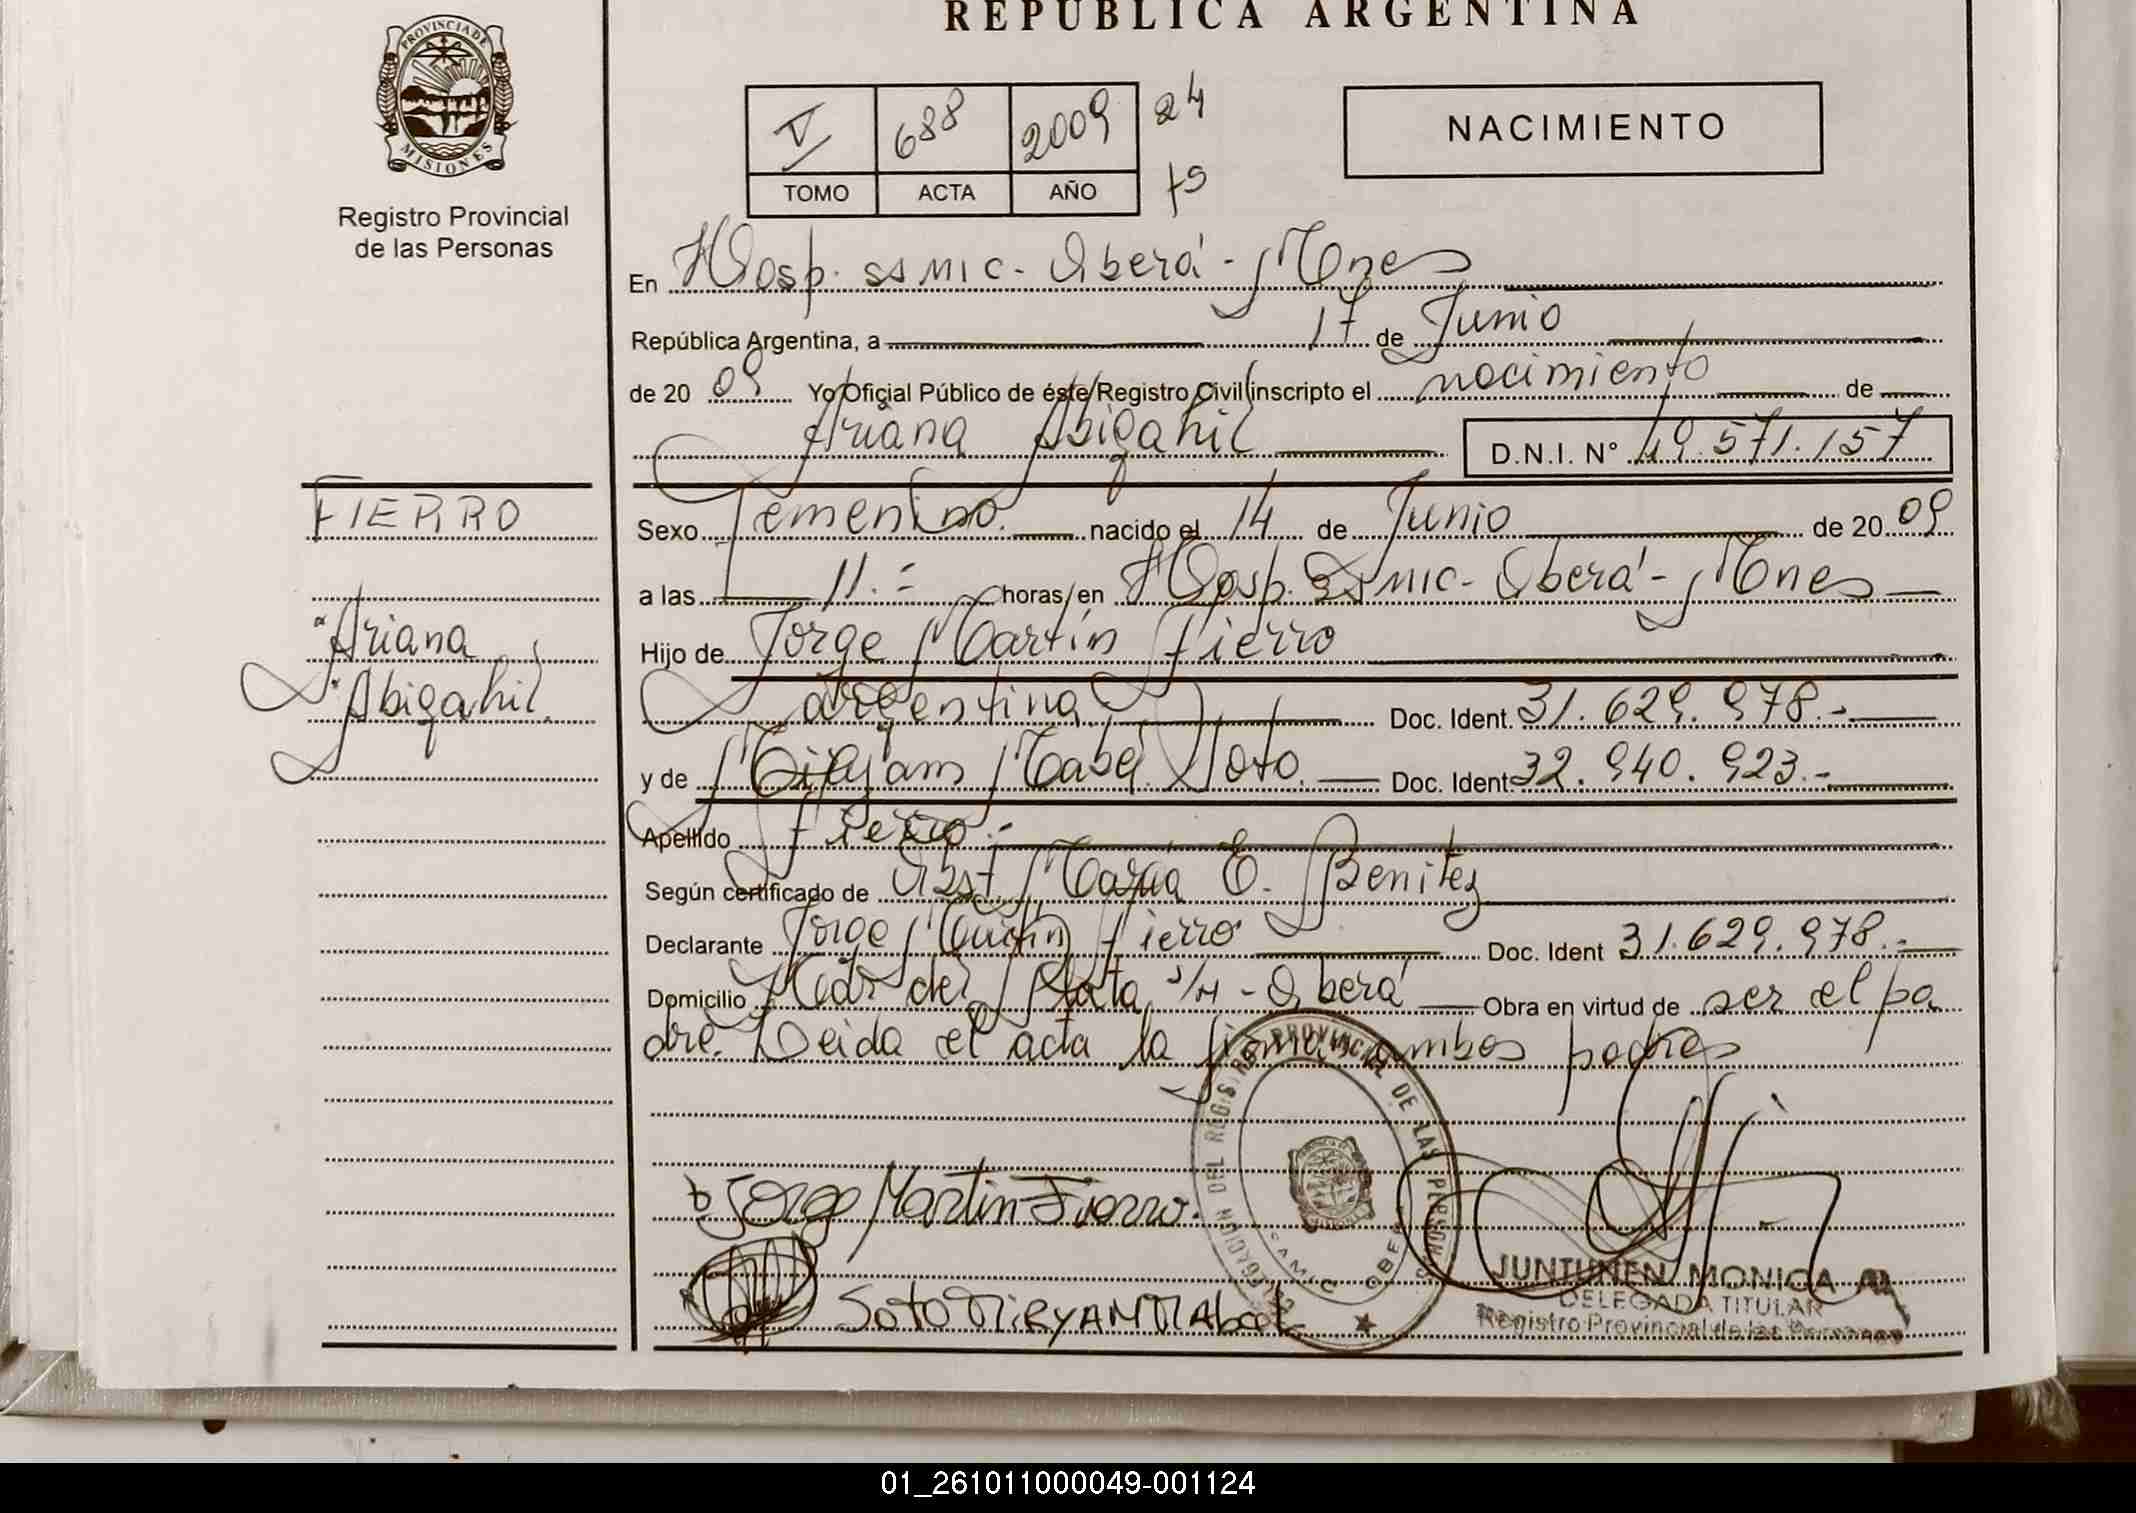 REPUBLICA ARGENTINA
PROVINCIA DE
MISIONES
Registro Provincial
de las Personas
V 688 2009 24
TOMO ACTA AÑO
NACIMIENTO
En Hosp. SSMIC - Oberá - Mnes
República Argentina, a 17 de Junio
de 20 09 Yo Oficial Público de éste Registro Civil inscripto el nacimiento de
Ariana Abigahil D.N.I. N° 49.571.157
FIERRO
"Ariana
"Abigahil
Sexo Femenino. nacido el 14 de Junio de 20 09
a las 11.= horas en Hosp. SSMIC - Oberá - Mnes
Hijo de Jorge Martín Fierro
argentina Doc. Ident. 31.629.978.-
y de Miryam Mabel Soto. Doc. Ident. 32.940.923.-
Apellido Fierro.-
Según certificado de Obst María E. Benitez
Declarante Jorge Martín Fierro Doc. Ident 31.629.978.-
Domicilio Mar del Plata s/n - Oberá Obra en virtud de ser el pa
dre. Leida el acta la firman ambos padres
Jorge Martin Fierro.
Soto Miryam Mabel
DELEGACION DEL REGISTRO PROVINCIAL DE LAS PERSONAS
SAMIC OBERA
JUNTUNEN MONICA
DELEGADA TITULAR
Registro Provincial de las Personas
01_261011000049-001124